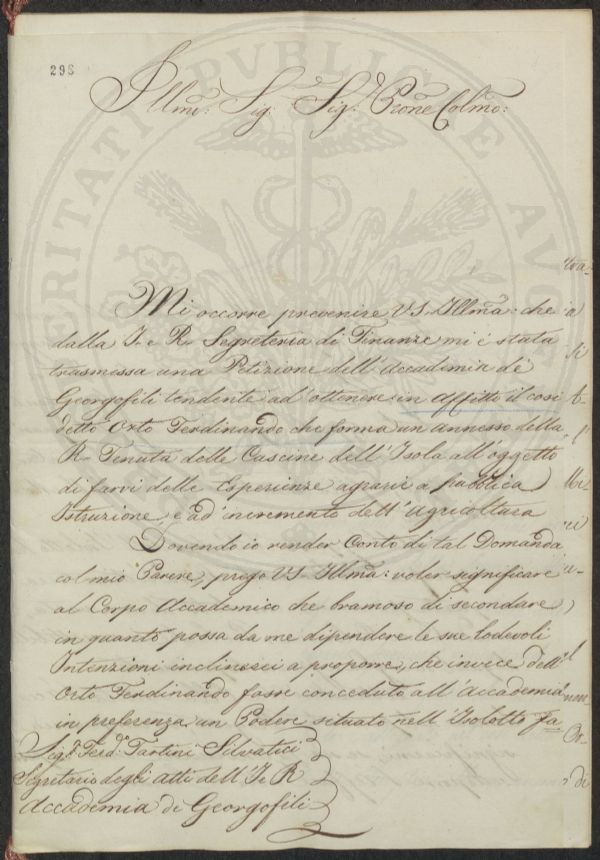 298
Illmo: Sig: Sig.r Prone Colmo:
Mi occorre prevenire VS. Illma: che
dalla I. e R. Segreteria di Finanze mi è stata
trasmessa una Petizione dell'Accademia de
Georgofili tendente ad ottenere in affitto il così
detto Orto Ferdinando che forma un annesso della
R. Tenuta delle Cascine dell'Isola all'oggetto
di farvi delle Esperienze agrarie a pubblica
Istruzione, e ad'incremento dell'Agricoltura
Dovendo io render Conto di tal Domanda
col mio Parere, prego VS. Illma: voler significare
al Corpo Accademico che bramoso di secondare,
in quanto possa da me dipendere le sue lodevoli
Intenzioni inclinerei a proporre, che invece dell'
Orto Ferdinando fosse conceduto all'Accademia
in preferenza un Podere situato nell'Isolotto fa
Sig.r Ferd.o Tartini Silvatici
Segretario degli Atti dell'I. e R.
Accademia di Georgofili
PUBLICAE